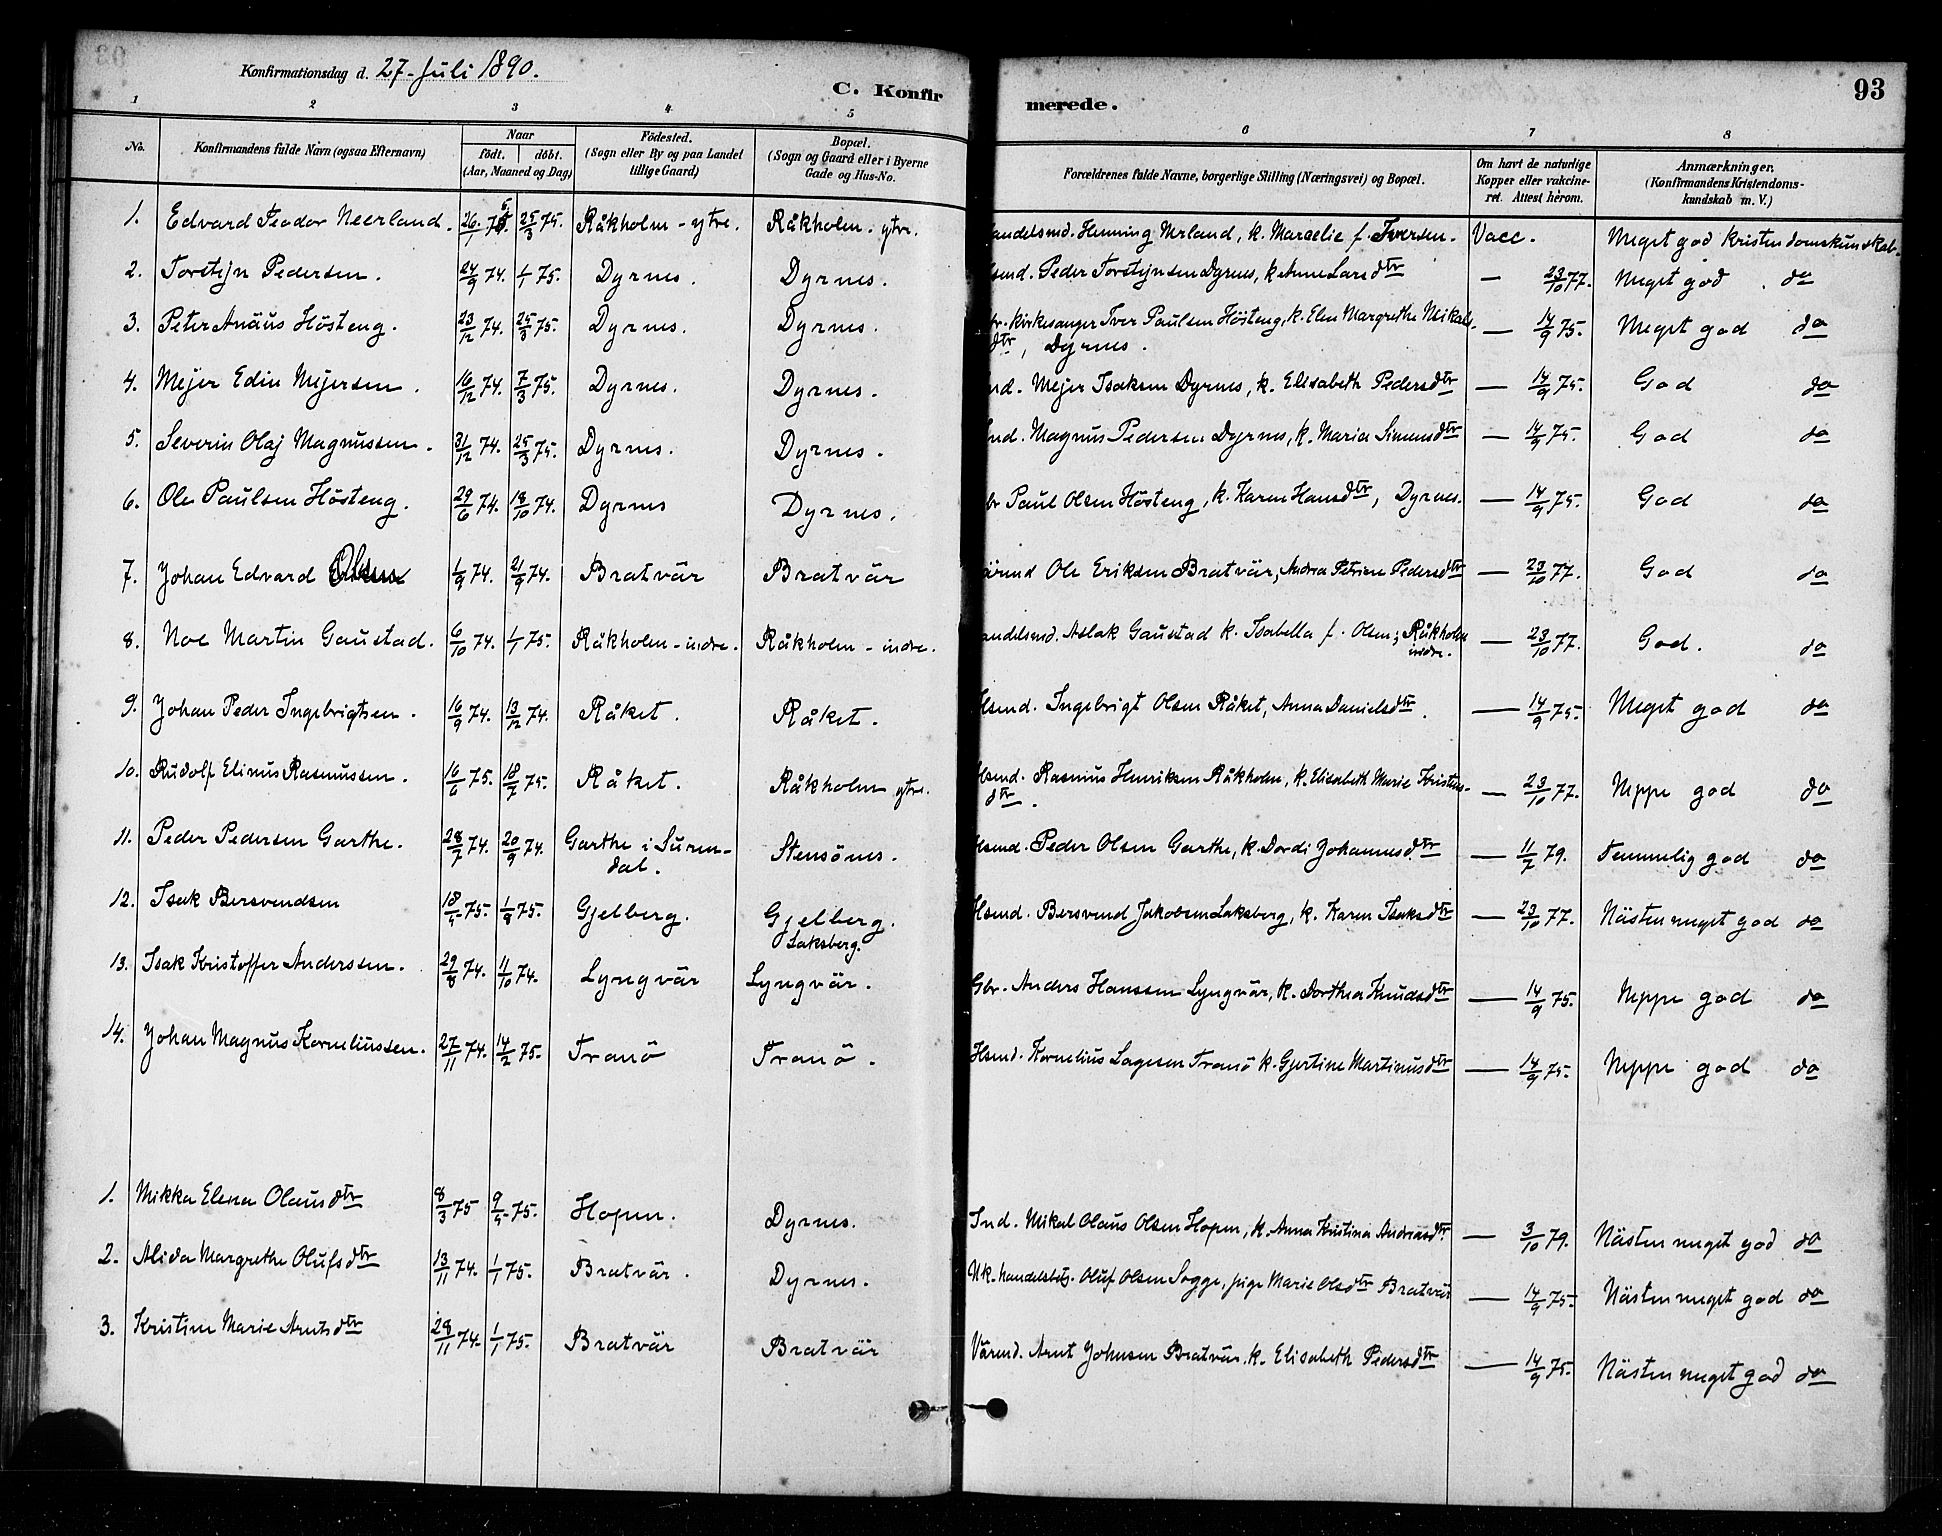 Konfirmationsdag d. 27. Juli 1890.
C. Konfir
merede.
93
1 2 3 4 5 6 7 8
No.
Konfirmandens fulde Navn (ogsaa Efternavn)
Naar
födt. döbt.
(Aar, Maaned og Dag)
Födested.
(Sogn eller By og paa Landet
tillige Gaard)
Bopæl.
(Sogn og Gaard eller i Byerne
Gade og Hus-No.
Forældrenes fulde Navne, borgerlige Stilling (Næringsvei) og Bopæl.
Om havt de naturlige
Kopper eller vakcine-
ret. Attest herom.
Anmærkninger.
(Konfirmandens Kristendoms-
kundskab m. V.)
1. Edvard Peador Neerland. 26/1 75. 25/3 75. Råkholm - ytre. Råkholm. ytre. andelsmd. Henning Nerland, k. Marselie f. Iversen. Vacc. Meget god Kristendomskundskab.
2. Torstejn Pedersen. 24/9 74. 1/1 75. Dyrnes. Dyrnes. smd. Peder Torstejnsen Dyrnes, k. Anne Larsdtr — 23/10 77. Meget god. do
3. Peter Anäus Hösteng. 23/12 74. 25/3 75. Dyrnes. Dyrnes. br. Kirkesanger Iver Paulsen Hösteng, k. Elen Margrethe Mikals- — 14/9 75. Meget god do
dtr, Dyrnes.
4. Mejer Edin Mejersen. 16/12 74. 7/3 75. Dyrnes. Dyrnes. nd. Mejer Isaksen Dyrnes, k. Elisabeth Pedersdtr — 14/9 75. God do
5. Severin Olaj Magnussen. 31/12 74. 25/3 75. Dyrnes. Dyrnes. Ind. Magnus Pedersen Dyrnes, k. Maria Simensdtr — 14/9 75. God do
6. Ole Paulsen Hösteng. 29/6 74. 18/10 74. Dyrnes Dyrnes. br Paul Olsen Hösteng, k. Karen Hansdtr, Dyrnes. — 14/9 75. God do
7. Johan Edvard Olsen 1/9 74. 21/9 74. Bratvär Bratvär ärmd Ole Eriksen Bratvär, Andrea Petrine Pedersdtr — 23/10 77. God do
8. Noe Martin Gaustad. 6/10 74. 1/1 75. Råkholm - indre. Råkholm - indre. andelsmd. Aslak Gaustad k. Isabella f. Olsen; Råkholm — 23/10 77. God. do
indre.
9. Johan Peder Ingebrigtsen. 16/9 74. 13/12 74. Råket. Råket. Hsmd. Ingebrigt Olsen Råket, Anna Danielsdtr. — 14/9 75. Meget god do
10. Rudolf Elinus Rasmussen. 16/6 75. 18/7 75. Råket. Råkholm ytre. Hsmd. Rasmus Henriksen Råkholm, k. Elisabeth Marie Kristens- — 23/10 77. Neppe god do
dtr.
11. Peder Pedersen Garthe. 28/7 74. 20/9 74. Garthe i Suren- Stensönes. Hsmd. Peder Olsen Garthe, k. Dordi Johannesdtr — 11/7 79. Temmelig god do
dal.
12. Isak Bersvendsen 18/5 75. 1/8 75. Gjelberg. Gjelberg. Hsmd. Bersvend Jakobsen Laksberg, k. Karen Isaksdtr — 23/10 77. Nästen meget god do
Laksberg.
13. Isak Kristoffer Anderssen. 29/8 74. 11/10 74. Lyngvär Lyngvär. Gbr. Anders Hanssen Lyngvär, k. Dorthea Knudsdtr — 14/9 75. Neppe god do
14. Johan Magnus Korneliussen. 27/11 74. 14/2 75. Tranö Tranö. Hsmd. Kornelius Lagesen Tranö k. Gjertine Martinusdtr — 14/9 75. Neppe god do
1. Mikka Elena Olausdtr 8/3 75 9/5 75. Hopen. Dyrnes. Ind. Mikal Olaus Olsen Hopen, k. Anna Kristina Andreasdtr — 3/10 79. Nästen meget god do
2. Alida Margrethe Olufsdtr 13/11 74. 1/1 75. Bratvär. Dyrnes. Uk. handelsbetj. Oluf Olsen Sogge, pige Marie Olsdtr Bratvär — 14/9 75. Nästen meget god do
3. Kristine Marie Arntsdtr 28/11 74. 1/1 75. Bratvär Bratvär Värmd. Arnt Johnsen Bratvär, k. Elisabeth Pedersdtr — 14/9 75. Nästen meget god do